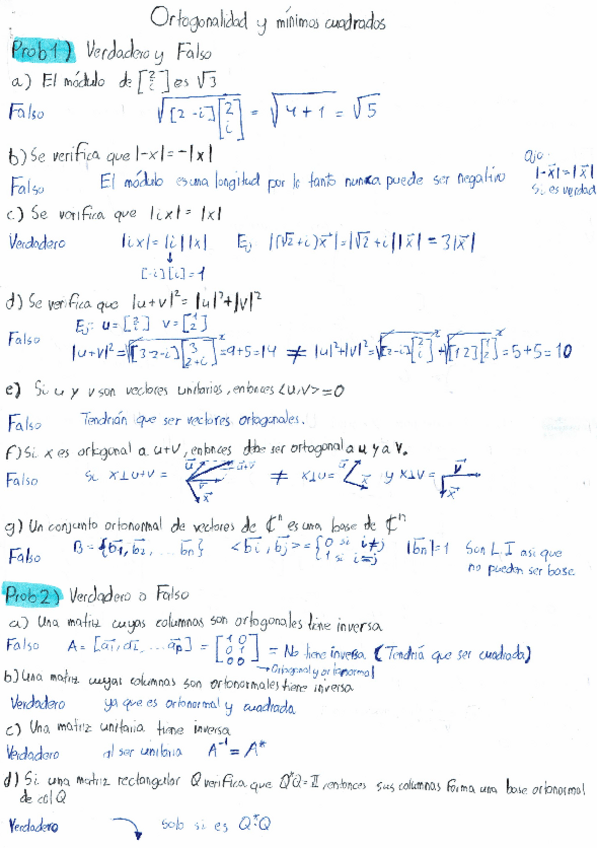 Ortogonalidad y mínimos cuadrados
Prob 1) Verdadero y Falso
a) El módulo de [2 i] es √3
Falso √([2 -i][2 i]) = √(4+1) = √5
b) Se verifica que |-x| = -|x|
Falso El módulo es una longitud por lo tanto nunca puede ser negativo
Ojo: |-x⃗| = |x⃗| Si es verdad
c) Se verifica que |ix| = |x|
Verdadero |ix| = |i||x| Ej |(√2+i)x⃗| = |√2+i||x⃗| = 3|x⃗|
[-i][i] = 1
d) Se verifica que |u+v|² = |u|²+|v|²
Ej: u = [2 i] v = [1 2]
Falso
|u+v|² = √([3 2-i][3 2+i])² = 9+5 = 14 ≠ |u|²+|v|² = √([2 -i][2 i])² + √([1 2][1 2])² = 5+5 = 10
e) Si u y v son vectores unitarios, entonces <u,v> = 0
Falso Tendrían que ser vectores ortogonales.
f) Si x es ortogonal a u+v, entonces debe ser ortogonal a u y a v.
Falso si x⊥u+v = u⃗ u+v v x⃗ ≠ x⊥u = u⃗ x⃗ y x⊥v = v⃗ x⃗
g) Un conjunto ortonormal de vectores de ℂⁿ es una base de ℂⁿ
Falso B = {b⃗1, b⃗2, ... b⃗n} <b⃗i, b⃗j> = {0 si i≠j 1 si i=j |b⃗n| = 1 Son L.I así que
no pueden ser base
Prob 2) Verdadero o Falso
a) Una matriz cuyas columnas son ortogonales tiene inversa
Falso A = [a⃗1, a⃗2, ... a⃗p] = [1 0 0 1 0 0] = No tiene inversa (Tendría que ser cuadrada)
→ Ortogonal y ortonormal
b) Una matriz cuyas columnas son ortonormales tiene inversa
Verdadero ya que es ortonormal y cuadrada
c) Una matriz unitaria tiene inversa
Verdadero al ser unitaria A⁻¹ = A*
d) Si una matriz rectangular Q verifica que Q*Q = I, entonces sus columnas forma una base ortonormal
de col Q
Verdadero solo si es Q*Q